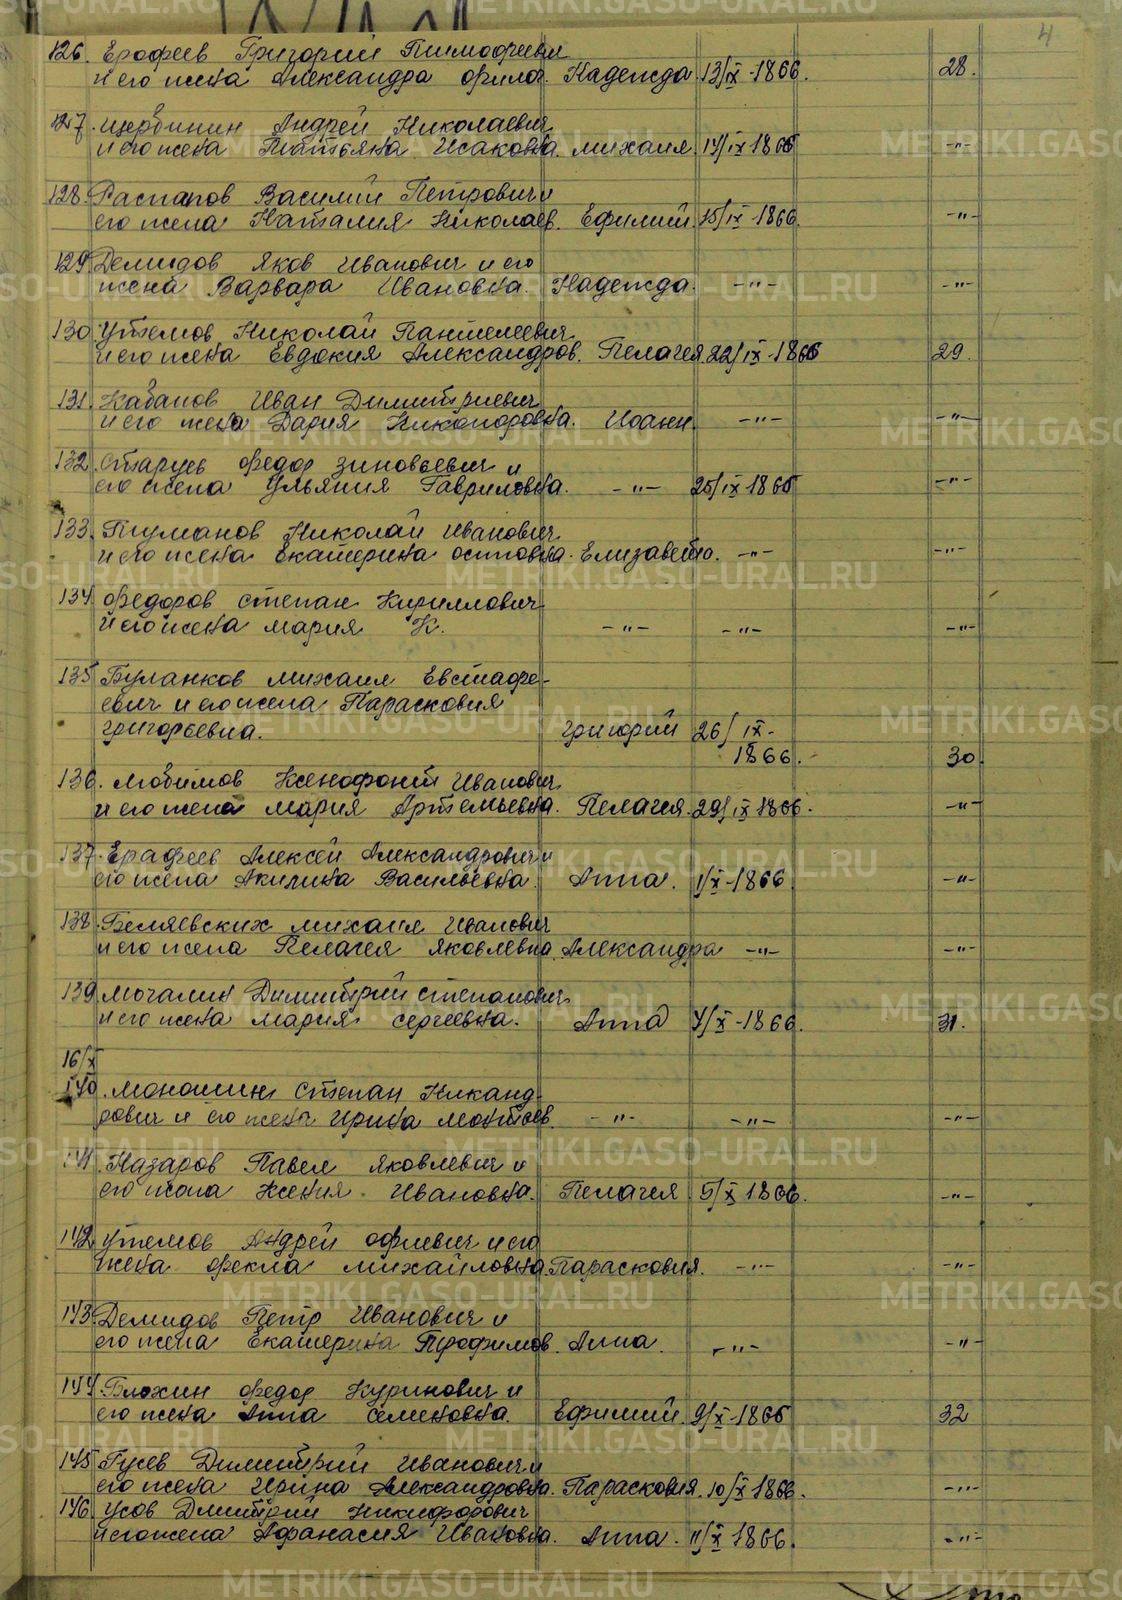 4
126. Ерофеев Григорий Тимофееви
и его жена Александра Филог. Надежда 13/IX-1866. 28.
127. Щербинин Андрей Николаевич
и его жена Татьяна Исаковна. Михаил 14/IX-1866 -"-
128. Распапов Василий Петрович и
его жена Наталия Николаев. Ефимий. 15/IX-1866. -"-
129 Демидов Яков Иванович и его
жена Варвара Ивановна. Надежда. -"- -"-
130 Утемов Николай Пантелеевич
и его жена Евдокия Александров. Пелагея. 22/IX-1866 29.
131. Кабанов Иван Димитриевич
и его жена Дария Никоноровна. Иоанн. -"- -"-
132. Старцев Федор Зиновьевич и
его жена Ульяния Гавриловна. -"- 25/IX-1866 -"-
133. Туманов Николай Иванович
и его жена Екатерина Осиповна. Елизавета. -"- -"-
134 Федоров Степан Кириллович
и его жена Мария К. -"- -"- -"-
135 Буланков Михаил Евстафе-
евич и его жена Парасковия
Григорьевна. Григорий 26/IX-
1866. 30.
136. Любимов Ксенофонт Иванович
и его жена Мария Артемьевна. Пелагея. 29/IX 1866. -"-
137. Ерафеев Алексей Александрович и
его жена Акилина Васильевна. Анна. 1/X-1866 -"-
138. Беляевских Михаил Иванович
и его жена Пелагея Яковлевна Александра -"- -"-
139 Мочалин Димитрий Степанович
и его жена Мария Сергеевна. Анна 4/X-1866. 31.
16/X
140. Мономин Степан Никанд-
рович и его жена Ирина Моктев. -"- -"- -"-
141. Назаров Павел Яковлевич и
его жена Ксения Ивановна. Пелагея 5/X 1866. -"-
142 Утемов Андрей Офиевич и его
жена Фекла Михайловна. Парасковия. -"- -"-
143. Демидов Петр Иванович и
его жена Екатерина Трофимов. Анна. -"- -"-
144 Блохин Федор Куринович и
его жена Анна Семеновна. Ефимий. 9/X-1866 32
145 Гусев Димитрий Иванович и
его жена Ирина Александровна. Парасковия. 10/X 1866. -"-
146 Усов Дмитрий Никифорович
и его жена Афанасия Ивановна. Анна. 11/X 1866. -"-
METRIKI.GASO-URAL.RU